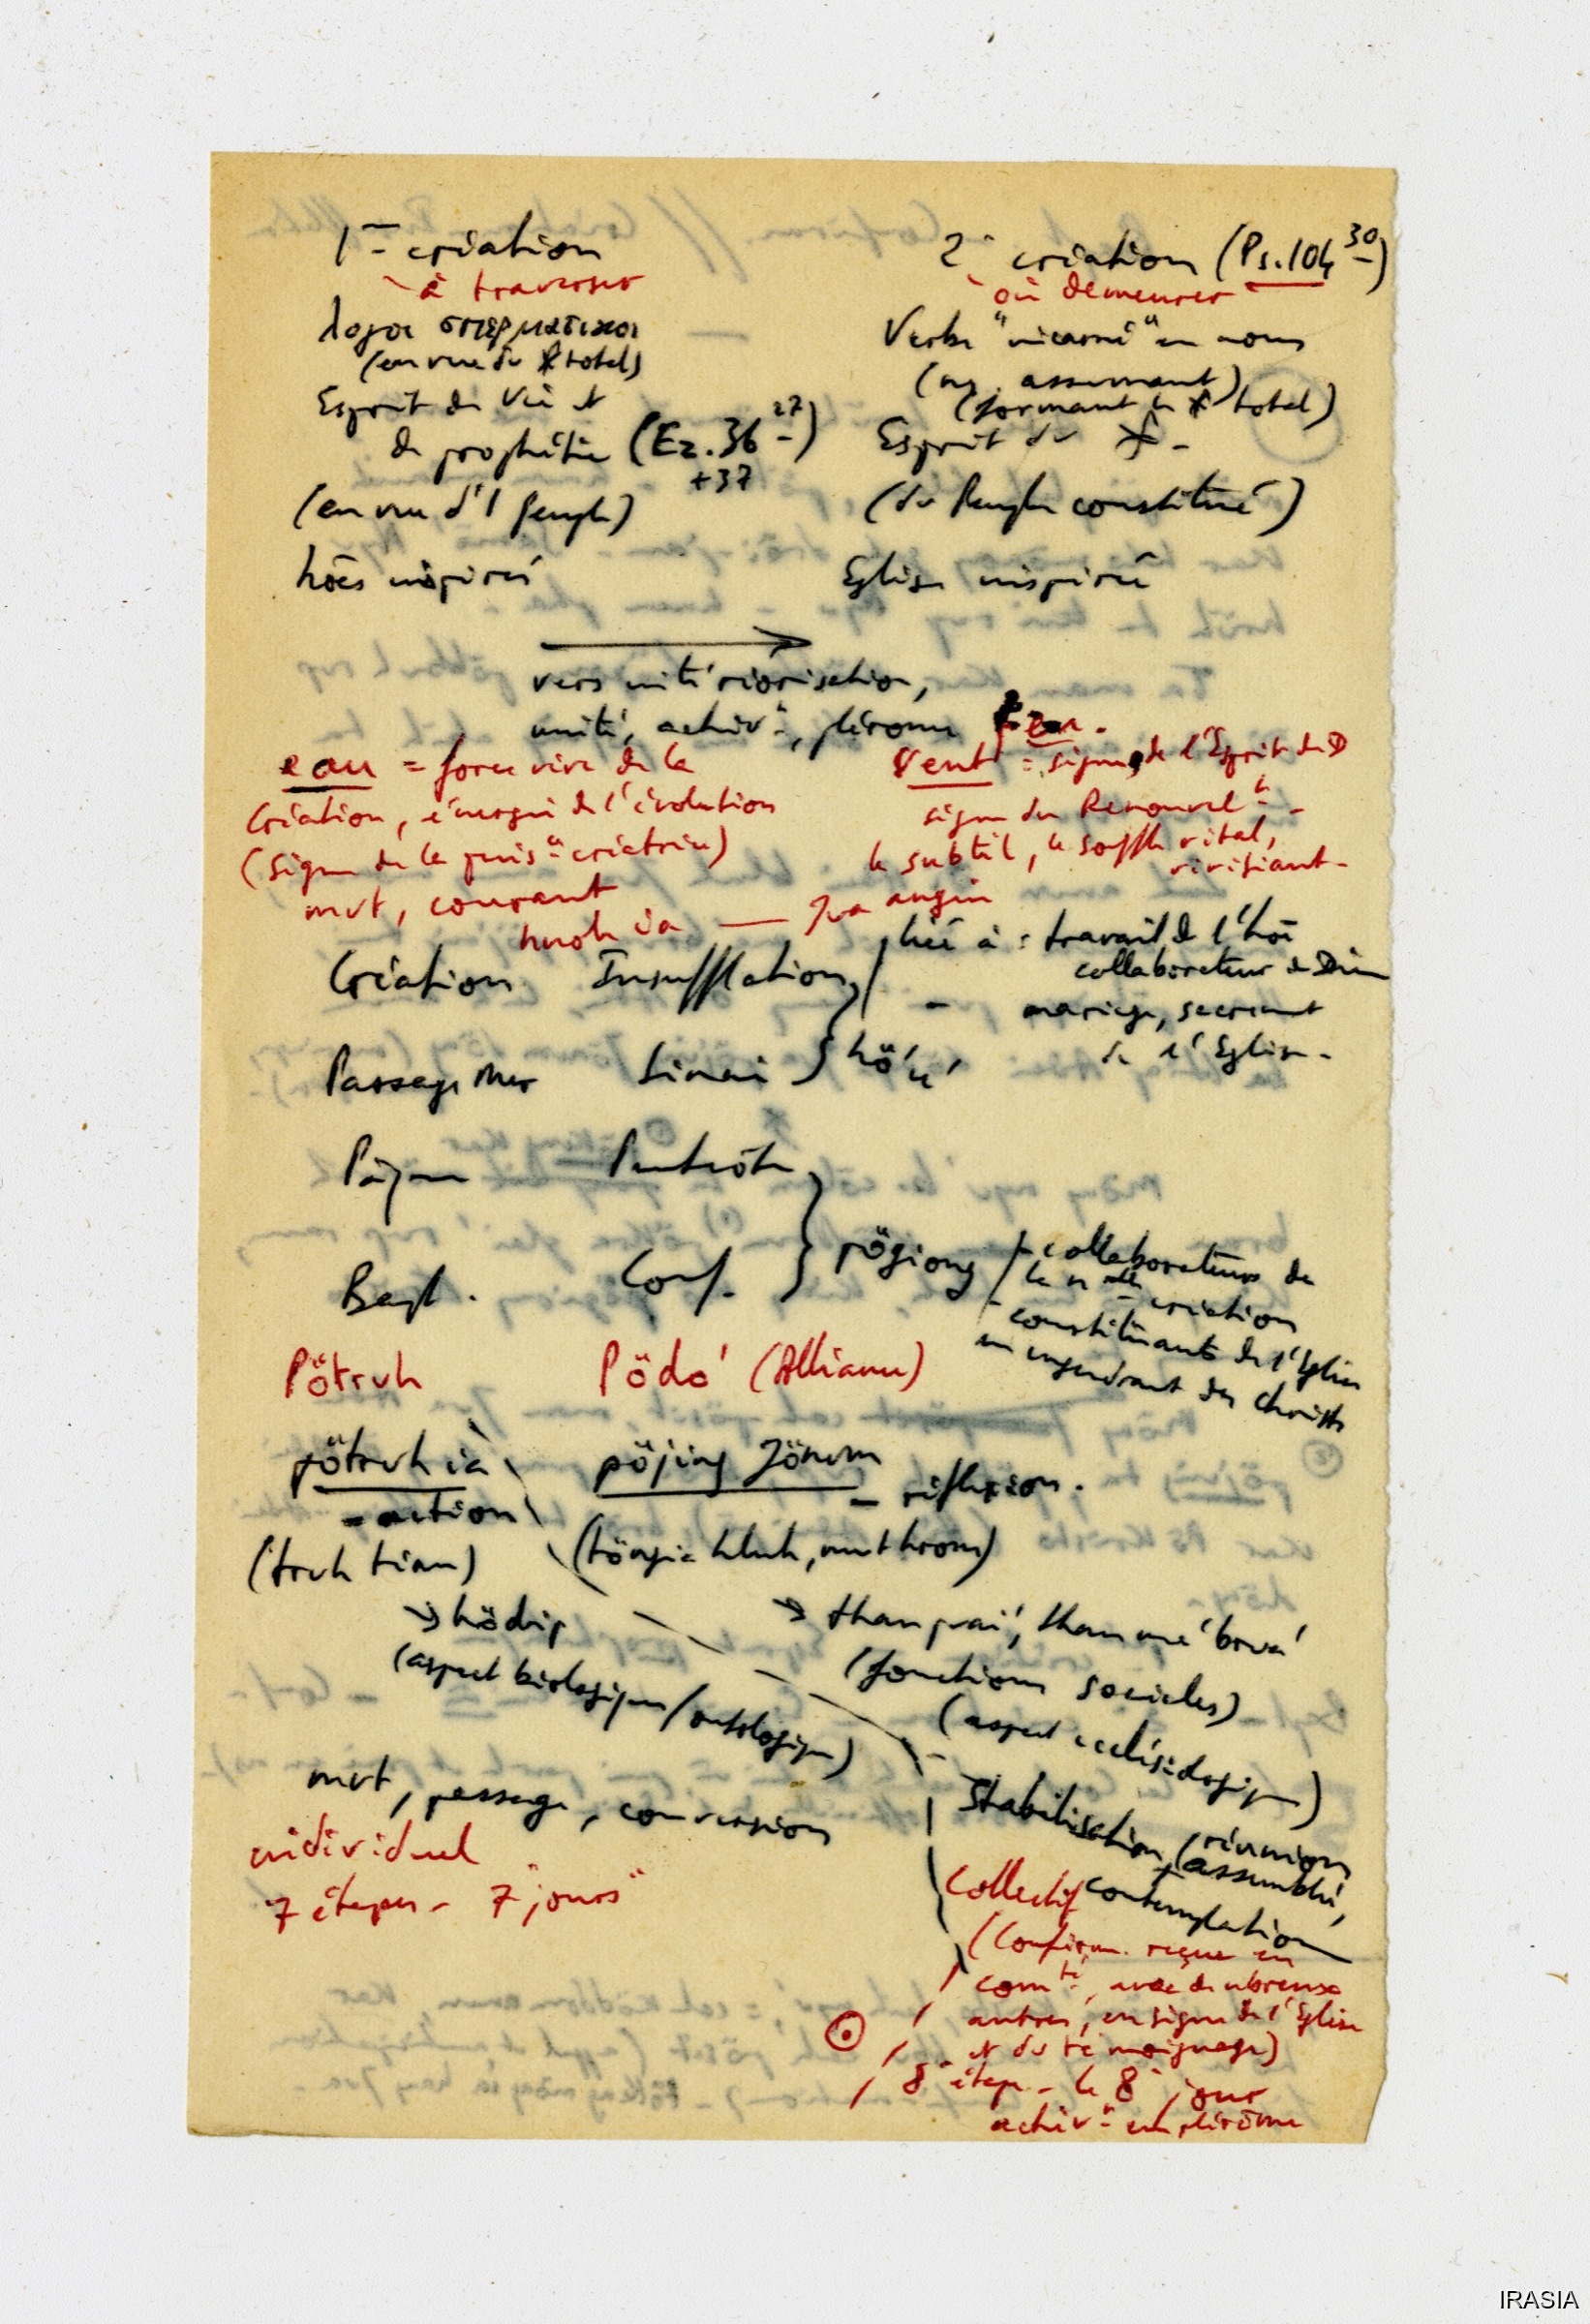 1re création
2e création (Ps. 104 30)
à traverser
où demeurer
λογοι σπερματικοι —
Verbe "incarné" en nous
(en vue du X total)
(ns. assumant)
(formant le X total)
Esprit de Vie et
de prophétie (Ez. 36 27)
+37
Esprit du X -
(en vue d'1 Peuple)
(du Peuple constitué)
hões inspirés
Eglise inspirée
vers intériorisation,
unité, achivt, plérome
eau = force vive de la
création, énergie de l'évolution
(signe de la puisce créatrice)
mvt, courant
hnoh ia — Jva angin
Vent = signe de l'Esprit de D
signe du Renouvelt -
le subtil, le souffle vital,
vivifiant -
Création Insufflation
lié à : travail de l'hõe
collaborateur de Dieu
- mariage, sacrement
de l'Eglise -
Passage Mer Sinai
Pâque Pentecôte
Bapt. Conf. pögiong
- collaborateurs de
la nlle création
- constituants de l'Eglise
en engendrant des christs
Pötruh Pödo' (Alliance)
pötruh ia pöjing Jönum
- action - réflexion.
(truh tian)
→ hödip
→ than prai', than mé bova'
(aspect biologique/ontologique)
(fonctions sociales)
(aspect ecclésiologique)
mvt, passage, conversion
Stabilisation (réunion
assemblée,
contemplation
individuel
Collectif
7 étapes - 7 "jours"
(Confirm. reçue en
comté, avec de nbreux
autres, en signe de l'Eglise
et du témoignage)
8e étape - le 8e jour
achivt en plérôme
IRASIA